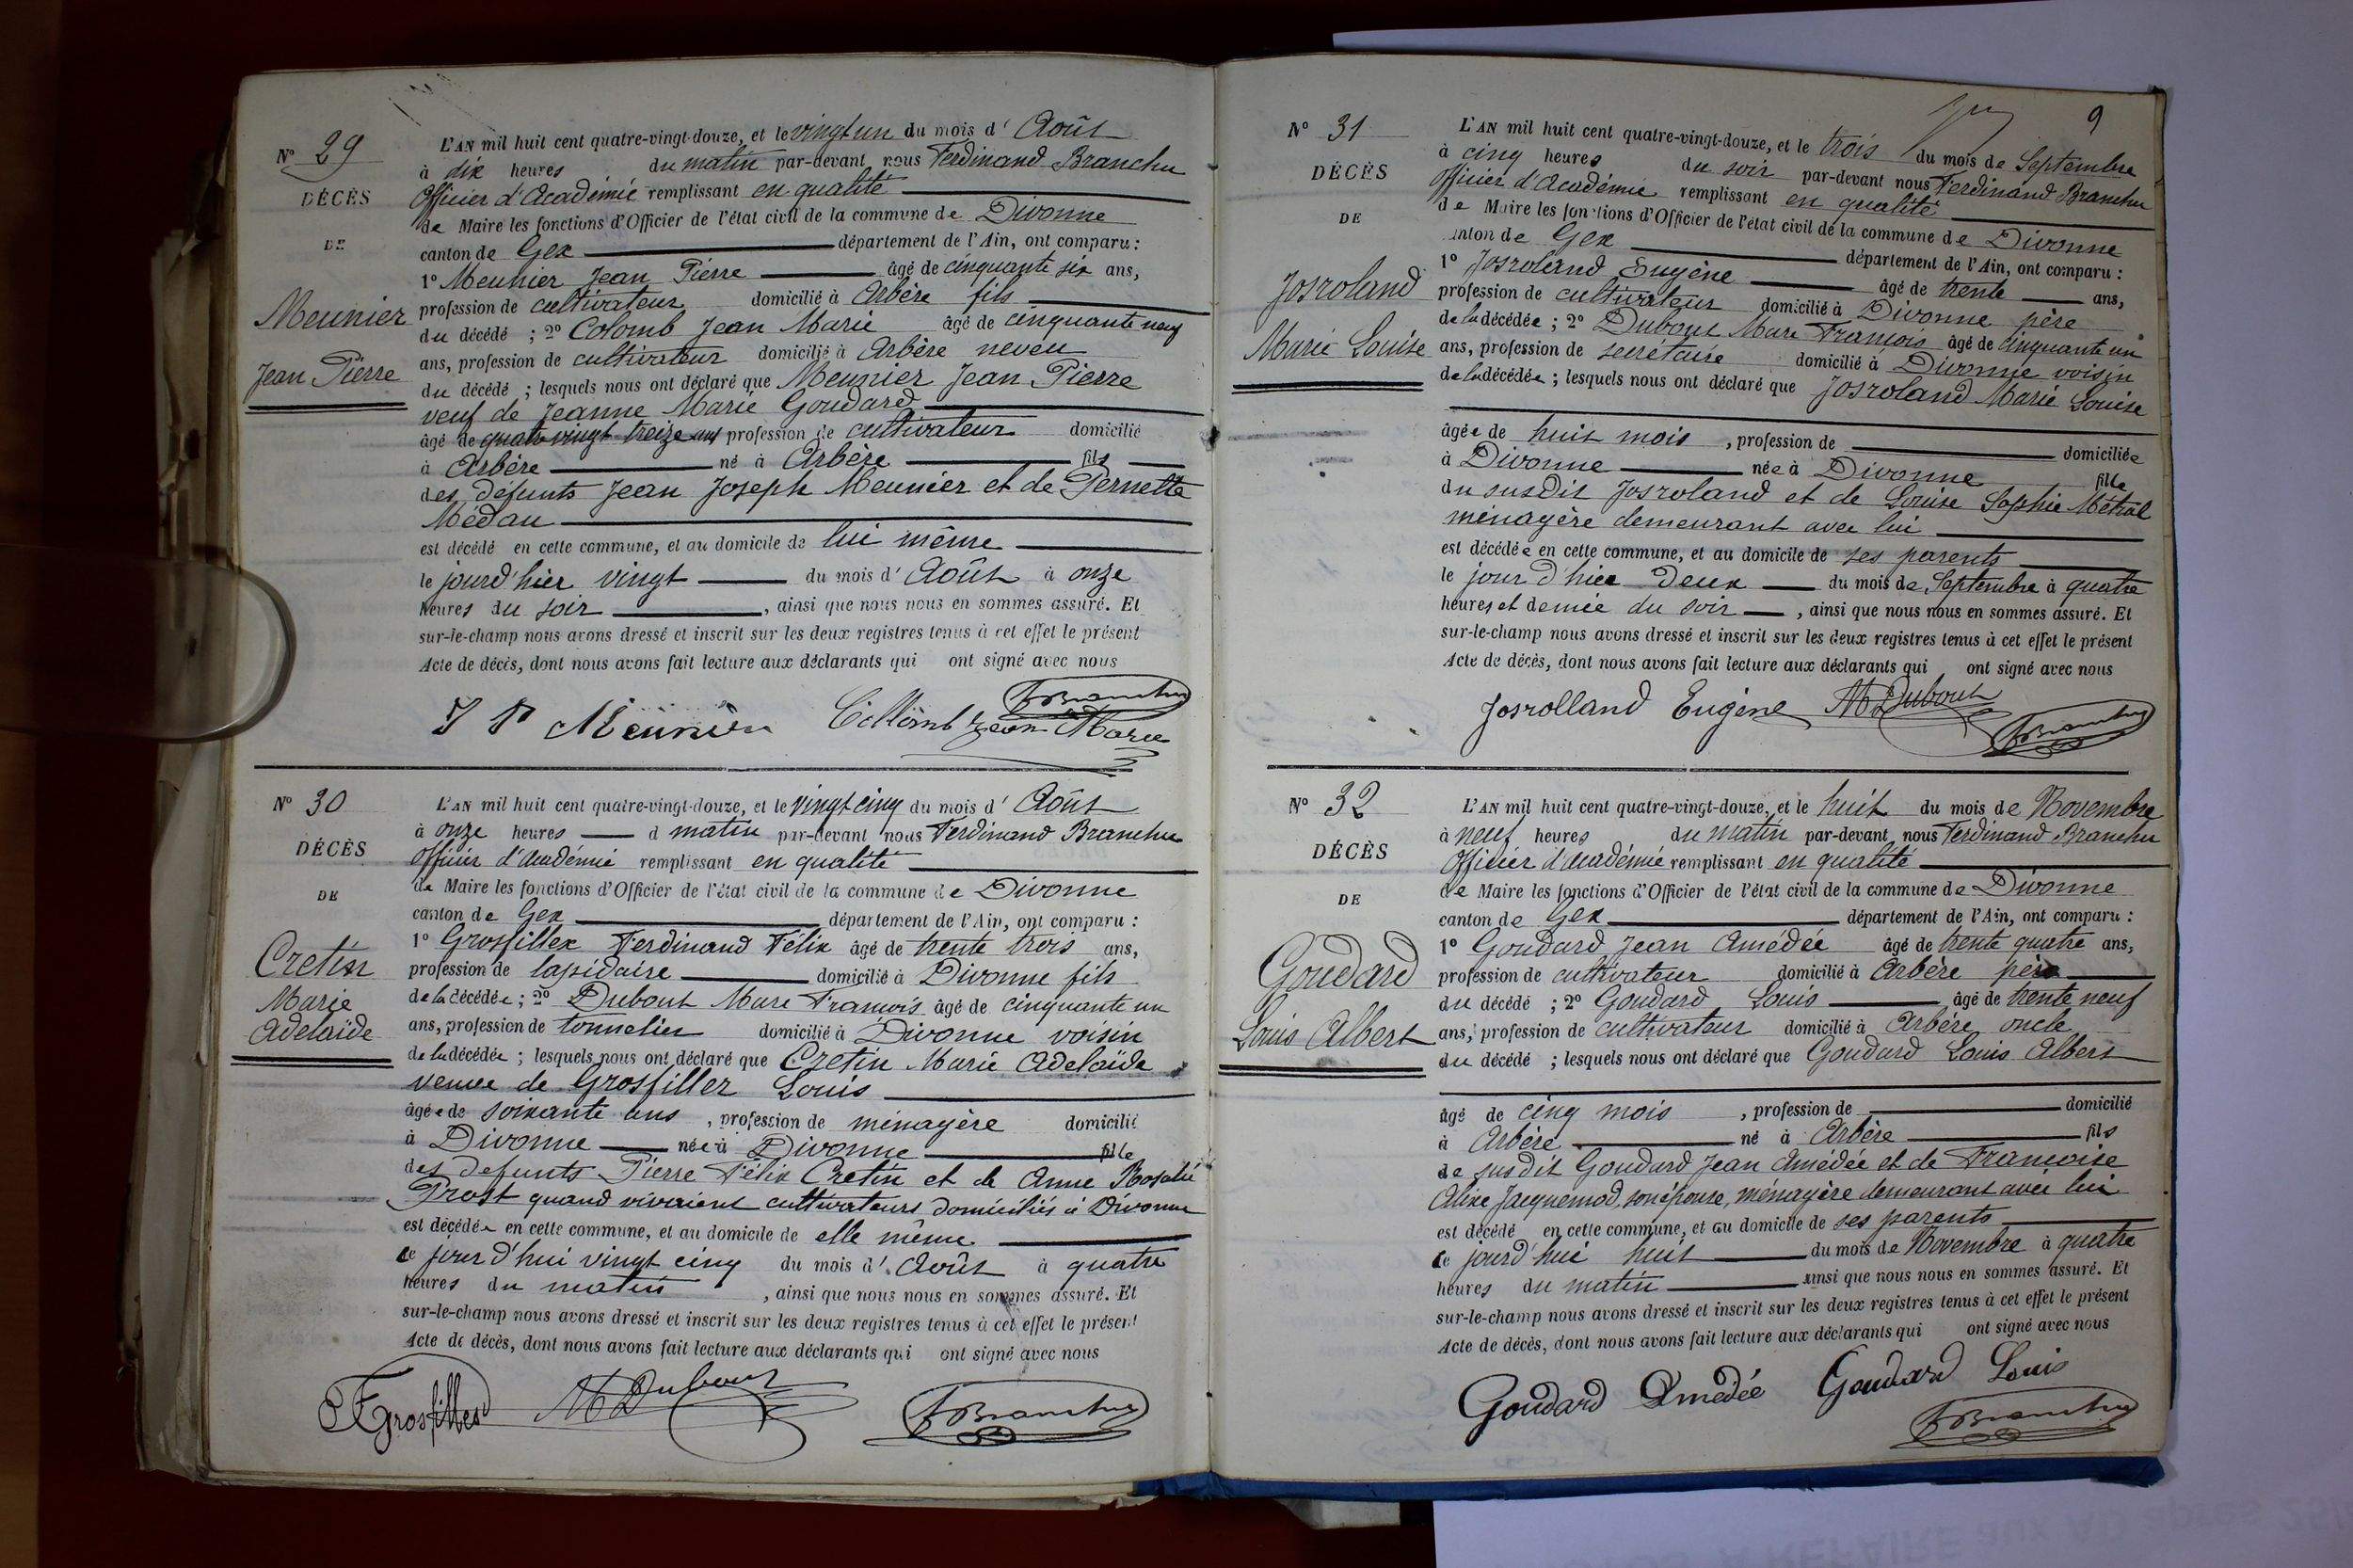 Nº 29
DÉCÈS
DE
Meunier
Jean Pierre
L'AN mil huit cent quatre-vingt-douze, et le vingt un du mois d' Août
à dix heures du matin par-devant nous Ferdinand Branchu
Officier d'Académie remplissant en qualité
de Maire les fonctions d'Officier de l'état civil de la commune de Divonne
canton de Gex département de l'Ain, ont comparu :
1º Meunier Jean Pierre âgé de cinquante six ans,
profession de cultivateur domicilié à Arbère fils
du décédé ; 2º Colomb Jean Marie âgé de cinquante neuf
ans, profession de cultivateur domicilié à Arbère neveu
du décédé ; lesquels nous ont déclaré que Meunier Jean Pierre
veuf de Jeanne Marie Goudard
âgé de quatre vingt treize ans profession de cultivateur domicilié
à Arbère né à Arbère fils
des défunts Jean Joseph Meunier et de Pernette
Médau
est décédé en cette commune, et au domicile de lui même
le jourd'hier vingt du mois d' Août à onze
heures du soir , ainsi que nous nous en sommes assuré. Et
sur-le-champ nous avons dressé et inscrit sur les deux registres tenus à cet effet le présent
Acte de décès, dont nous avons fait lecture aux déclarants qui ont signé avec nous
J P Meunier Collomb Jean Marie FBranchu
Nº 30
DÉCÈS
DE
Cretin
Marie
Adelaïde
L'AN mil huit cent quatre-vingt-douze, et le vingt cinq du mois d' Août
à onze heures d matin par-devant nous Ferdinand Branchu
Officier d'Académie remplissant en qualité
de Maire les fonctions d'Officier de l'état civil de la commune de Divonne
canton de Gex département de l'Ain, ont comparu :
1º Grosfillex Ferdinand Félix âgé de trente trois ans,
profession de lapidaire domicilié à Divonne fils
de la décédée ; 2º Dubout Marc François âgé de cinquante un
ans, profession de tonnelier domicilié à Divonne voisin
de la décédée ; lesquels nous ont déclaré que Cretin Marie Adelaïde
veuve de Grosfiller Louis
âgée de soixante ans , profession de ménagère domicilié
à Divonne née à Divonne fille
des defunts Pierre Félix Cretin et de Anne Rosalie
Prost quand vivaient cultivateurs domiciliés à Divonne
est décédée en cette commune, et au domicile de elle même
ce jour d'hui vingt cinq du mois d' Août à quatre
heures du matin , ainsi que nous nous en sommes assuré. Et
sur-le-champ nous avons dressé et inscrit sur les deux registres tenus à cet effet le présent
Acte de décès, dont nous avons fait lecture aux déclarants qui ont signé avec nous
FGrosfillex MDubout FBranchu
9
Nº 31
DÉCÈS
DE
Josroland
Marie Louise
L'AN mil huit cent quatre-vingt-douze, et le trois du mois de Septembre
à cinq heures du soir par-devant nous Ferdinand Branchu
Officier d'Académie remplissant en qualité
de Maire les fonctions d'Officier de l'état civil de la commune de Divonne
canton de Gex département de l'Ain, ont comparu :
1º Josroland Eugène âgé de trente ans,
profession de cultivateur domicilié à Divonne père
de la décédée ; 2º Dubout Marc François âgé de cinquante un
ans, profession de secrétaire domicilié à Divonne voisin
de la décédée ; lesquels nous ont déclaré que Josroland Marie Louise
âgée de huit mois , profession de domiciliée
à Divonne née à Divonne fille
du susdit Josroland et de Louise Sophie Métral
ménagère demeurant avec lui
est décédée en cette commune, et au domicile de ses parents
le jour d'hier Deux du mois de Septembre à quatre
heures et demie du soir , ainsi que nous nous en sommes assuré. Et
sur-le-champ nous avons dressé et inscrit sur les deux registres tenus à cet effet le présent
Acte de décès, dont nous avons fait lecture aux déclarants qui ont signé avec nous
Josrolland Eugène MDubout FBranchu
Nº 32
DÉCÈS
DE
Goudard
Louis Albert
L'AN mil huit cent quatre-vingt-douze, et le huit du mois de Novembre
à neuf heures du matin par-devant nous Ferdinand Branchu
Officier d'académie remplissant en qualité
de Maire les fonctions d'Officier de l'état civil de la commune de Divonne
canton de Gex département de l'Ain, ont comparu :
1º Goudard Jean Amédée âgé de trente quatre ans,
profession de cultivateur domicilié à Arbère père
du décédé ; 2º Goudard Louis âgé de trente neuf
ans, profession de cultivateur domicilié à Arbère oncle
du décédé ; lesquels nous ont déclaré que Goudard Louis Albert
âgé de cinq mois , profession de domicilié
à Arbère né à Arbère fils
de susdit Goudard Jean Amédée et de Françoise
Alixe Jacquemod, son épouse, ménagère demeurant avec lui
est décédé en cette commune, et au domicile de ses parents
ce jourd'hui huit du mois de Novembre à quatre
heures du matin ainsi que nous nous en sommes assuré. Et
sur-le-champ nous avons dressé et inscrit sur les deux registres tenus à cet effet le présent
Acte de décès, dont nous avons fait lecture aux déclarants qui ont signé avec nous
Goudard Amédée Goudard Louis
FBranchu